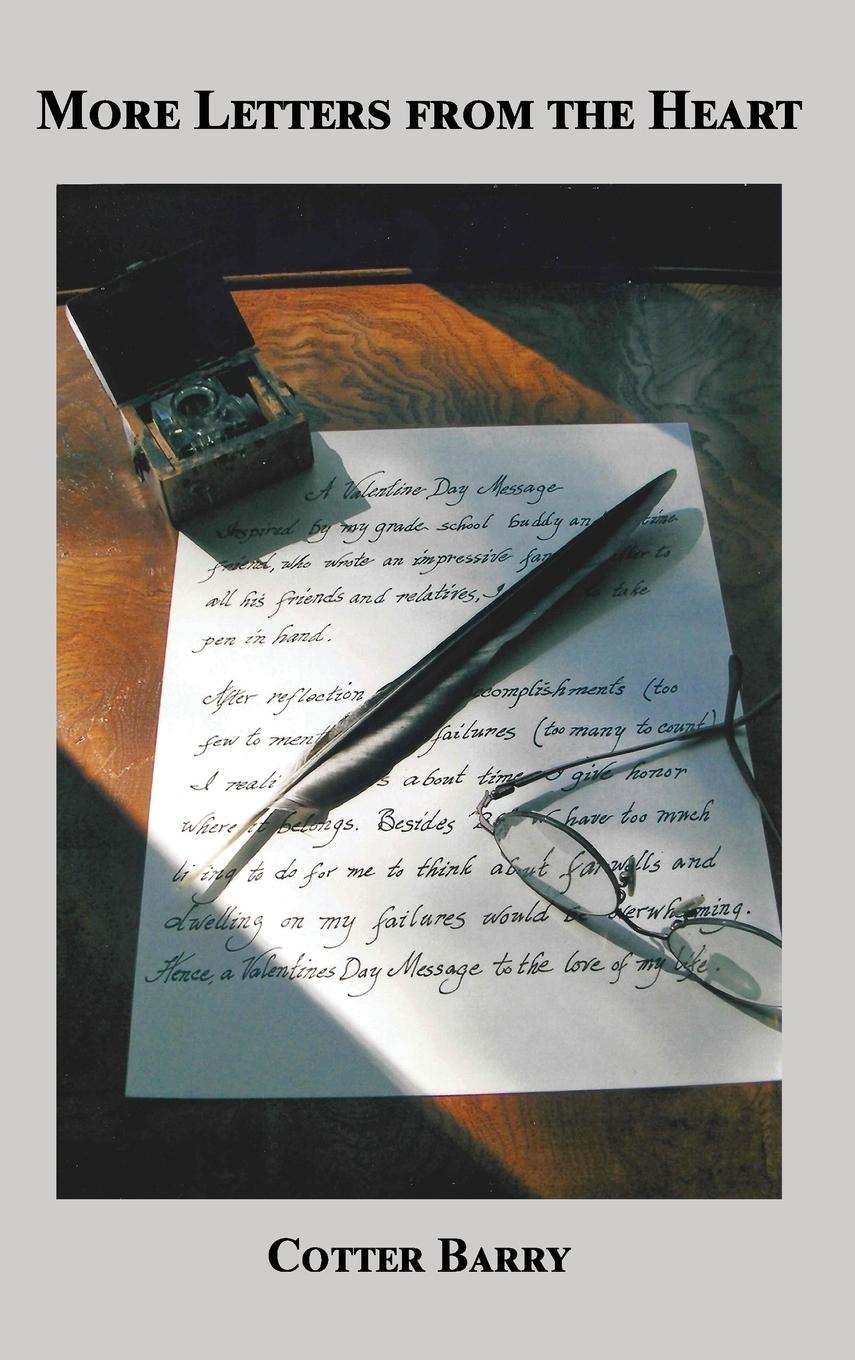 MORE LETTERS FROM THE HEART
A Valentine Day Message
Inspired by my grade school buddy an time
friend, who wrote an impressive fa to
all his friends and relatives, I to take
pen in hand.
After reflection complishments (too
few to ment failures (too many to count)
I reali s about time I give honor
where it belongs. Besides have too much
living to do for me to think about farwells and
dwelling on my failures would be overwhelming.
Hence, a Valentines Day Message to the love of my life.
COTTER BARRY